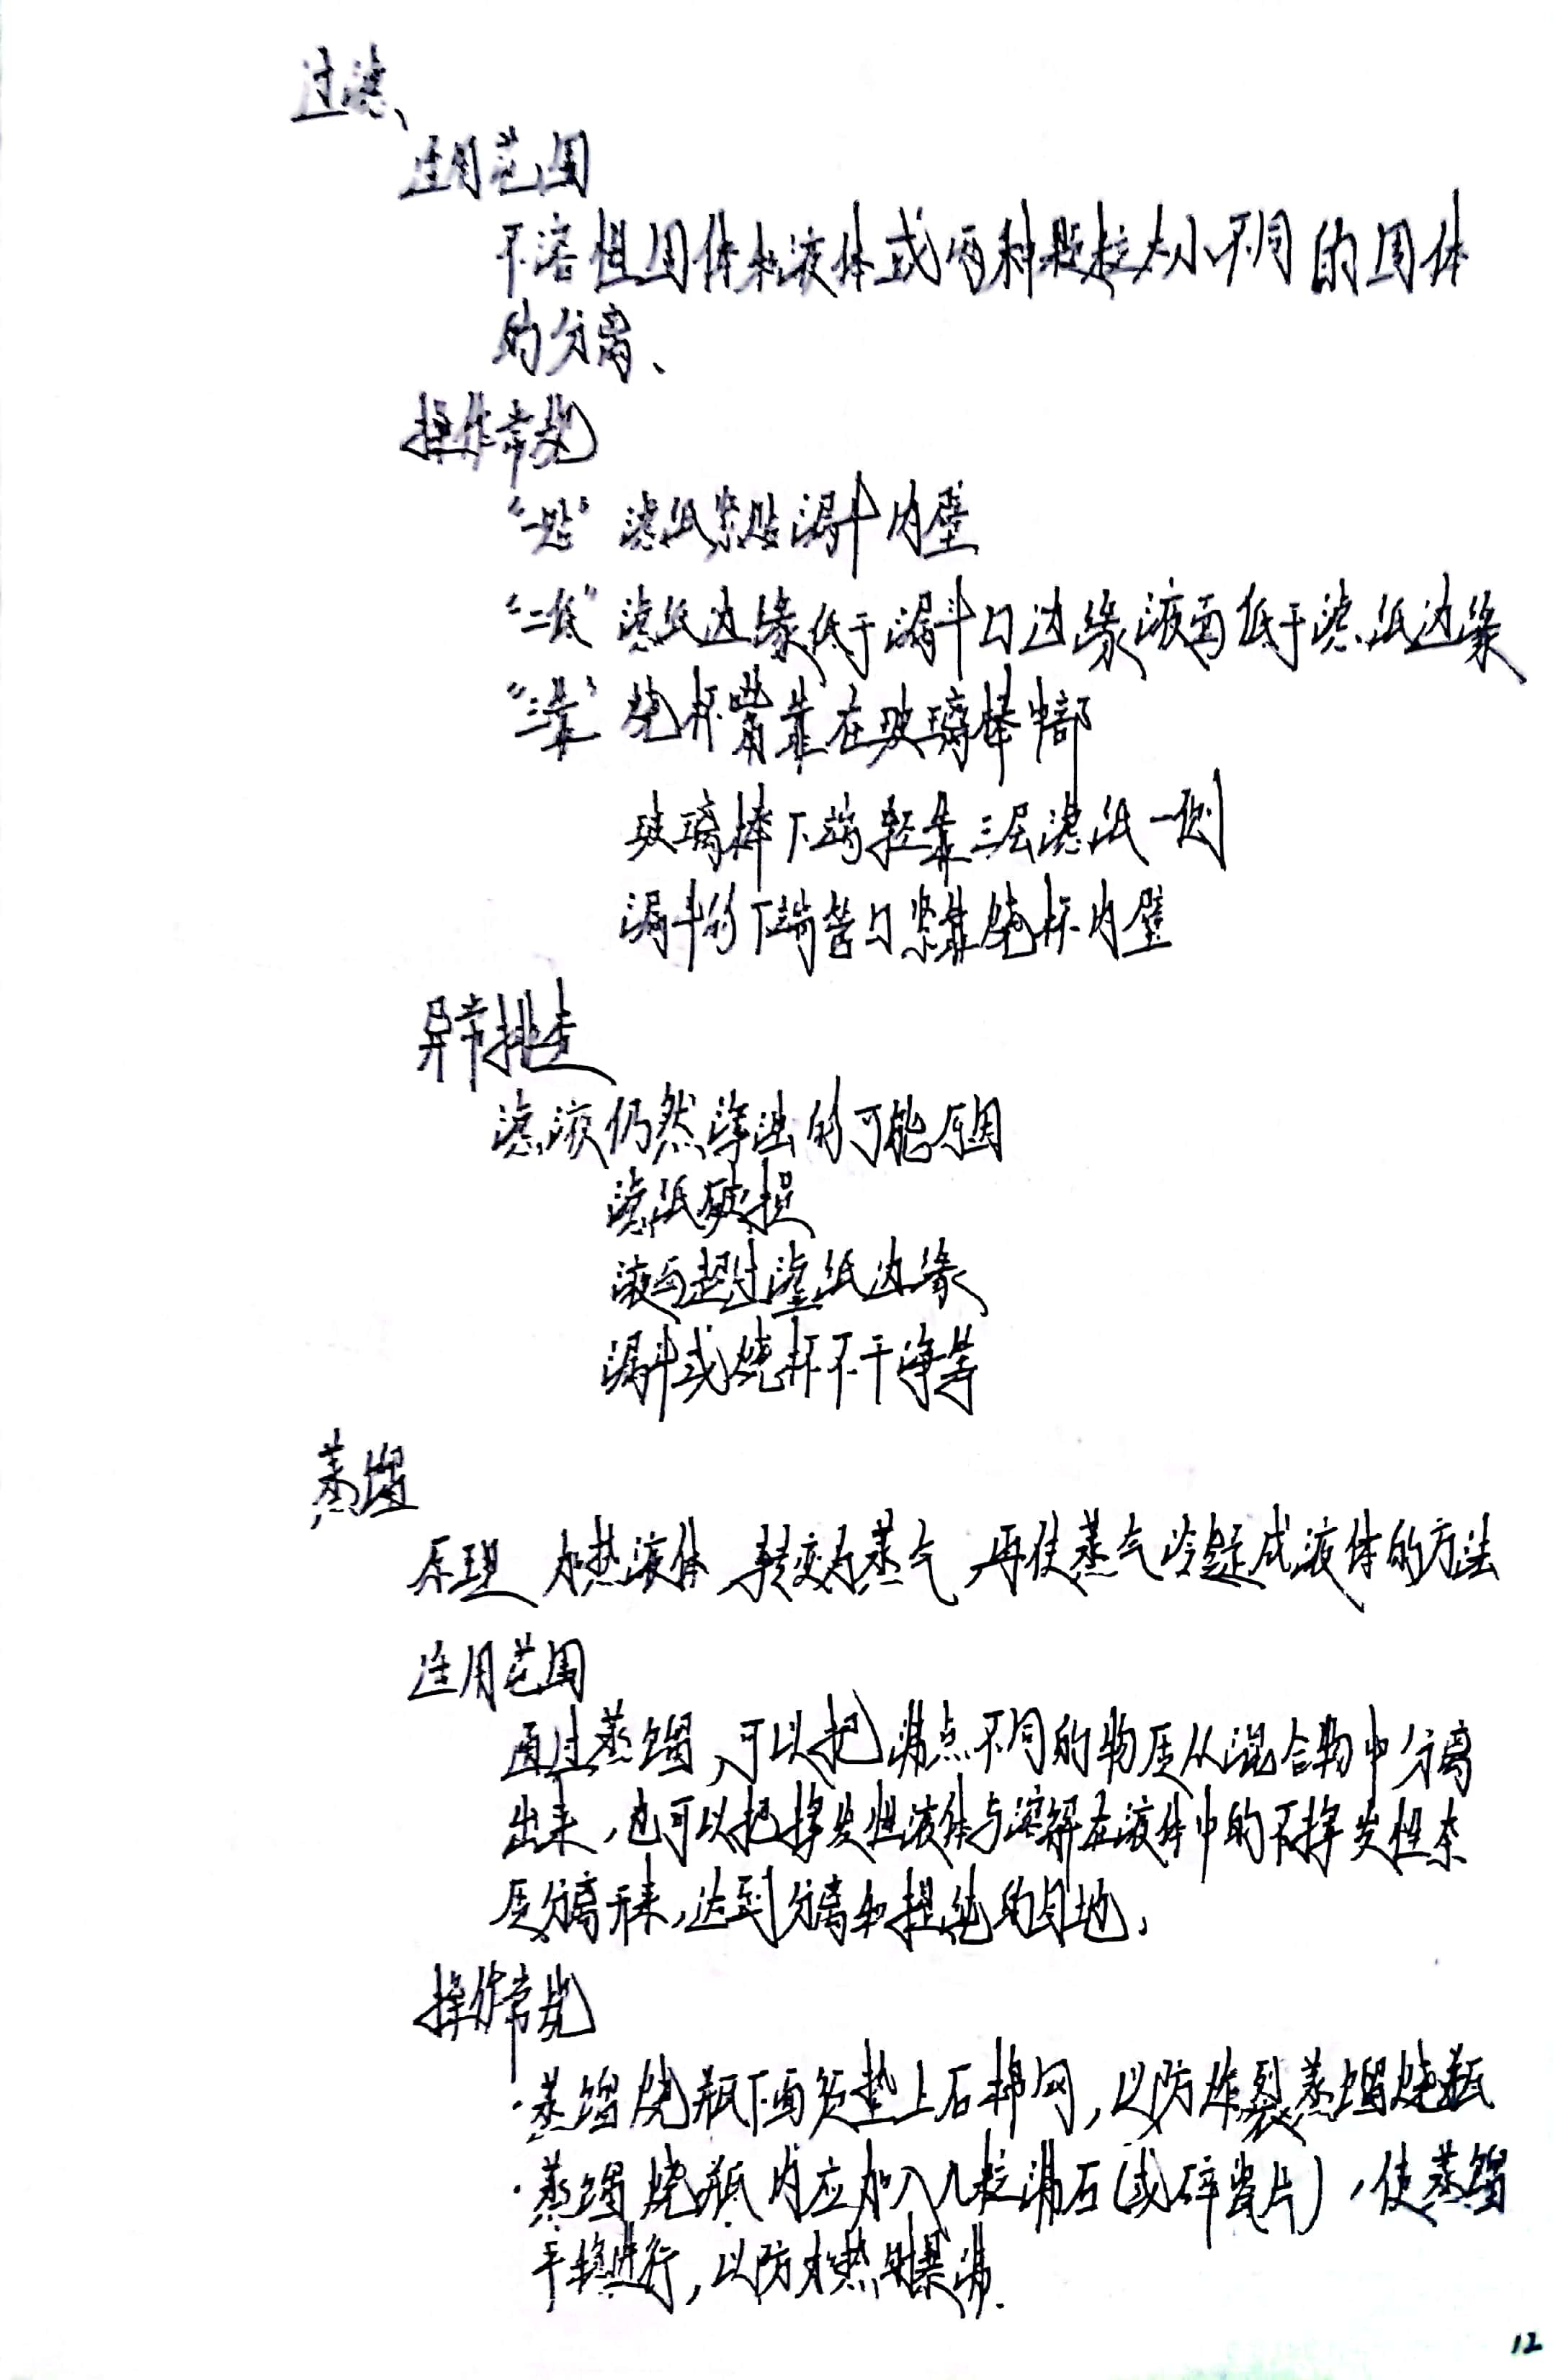 过滤、
适用范围
不溶性固体和液体或两种颗粒大小不同的固体
的分离、
操作常规
“一贴” 滤纸紧贴漏斗内壁
“二低” 滤纸边缘低于漏斗口边缘液面低于滤纸边缘
“三靠” 烧杯嘴靠在玻璃棒中部
玻璃棒下端轻靠三层滤纸一侧
漏斗的下端管口紧靠烧杯内壁
异常排查
滤液仍然浑浊的可能原因
滤纸破损
液面超过滤纸边缘
漏斗或烧杯不干净等
蒸馏
原理 加热液体 转变为蒸气 再使蒸气冷凝成液体的方法
适用范围
通过蒸馏、可以把沸点不同的物质从混合物中分离
出来,也可以把挥发性液体与溶解在液体中的不挥发性杂
质分离开来,达到分离和提纯的目地,
操作常规
·蒸馏烧瓶下面须垫上石棉网,以防炸裂蒸馏烧瓶
·蒸馏烧瓶内应加入几粒沸石(或碎瓷片),使蒸馏
平稳进行,以防加热时暴沸.
12